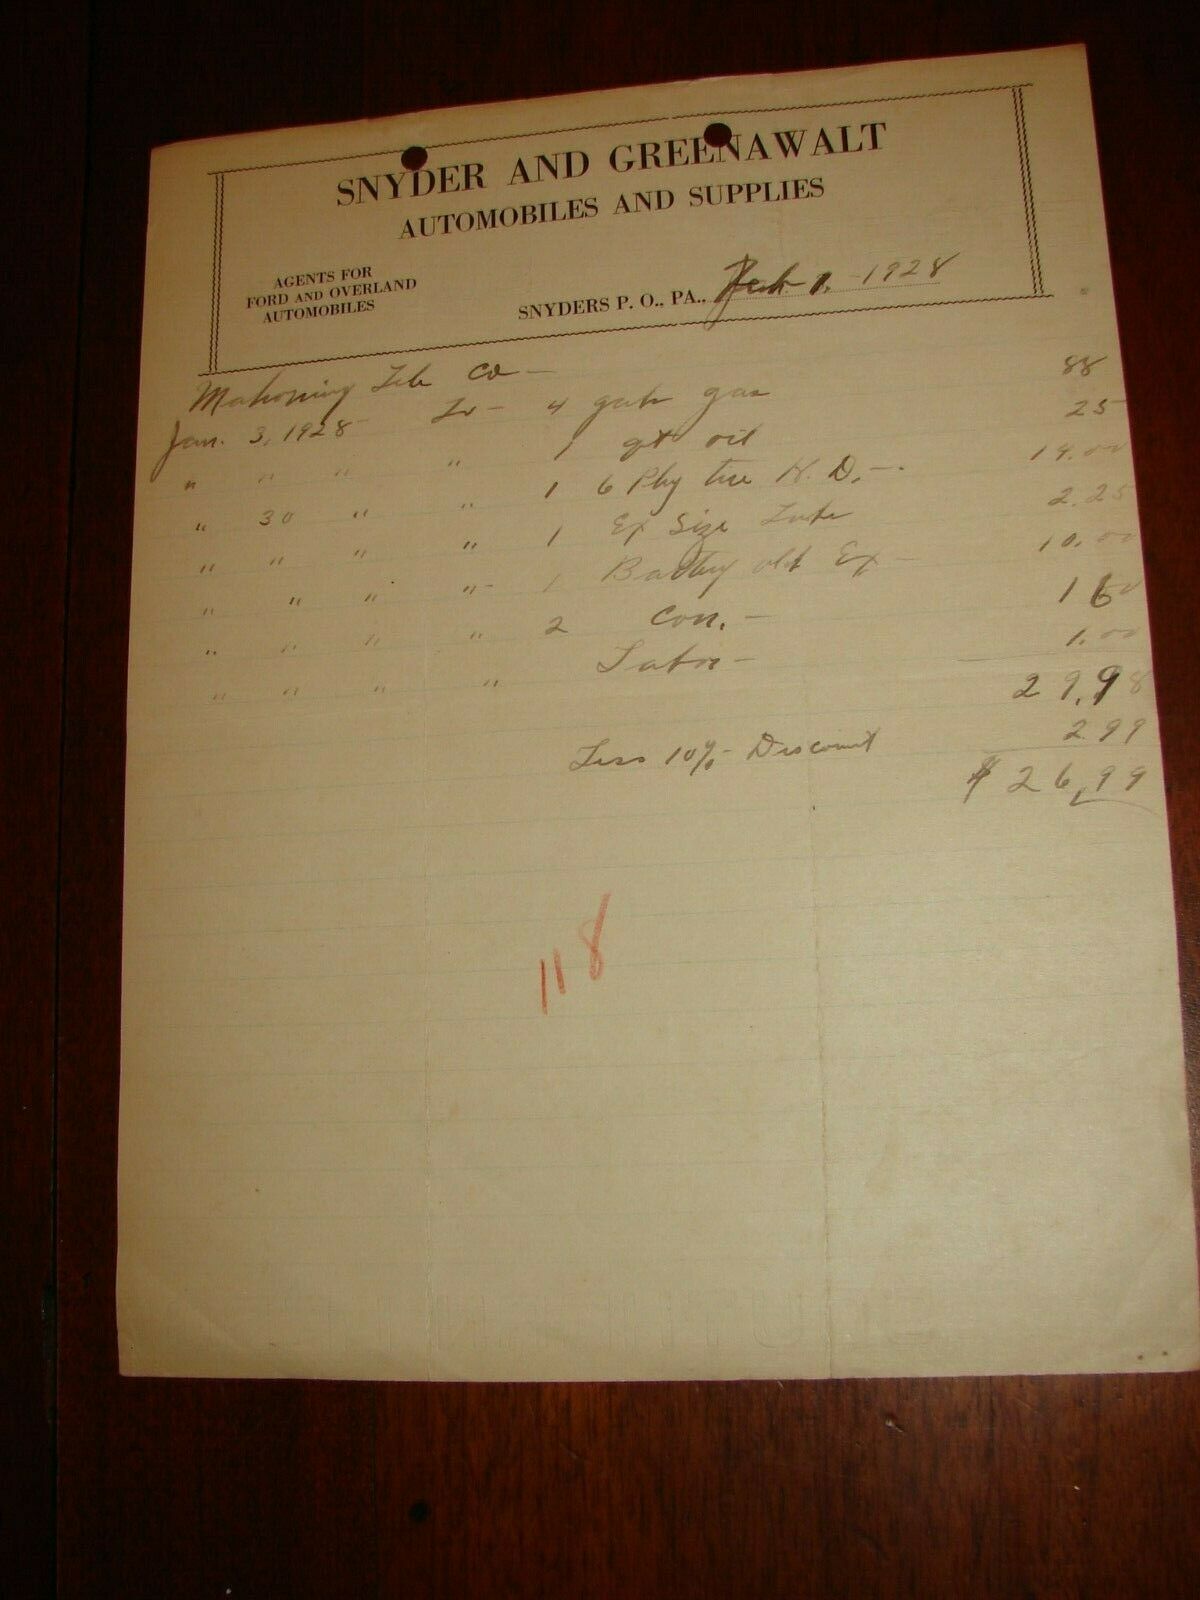 SNYDER AND GREENAWALT
AUTOMOBILES AND SUPPLIES
AGENTS FOR
FORD AND OVERLAND
AUTOMOBILES
SNYDERS P. O., PA., Feb 1, 1928
Mahoning Tele Co —
Jan. 3, 1928 To — 4 gals gas 88
" " " " 1 qt oil 25
" 30 " " 1 6 Ply tire H. D. — 14.00
" " " " 1 Ex Size Tube 2.25
" " " " 1 Battery old Ex — 10.00
" " " " 2 Con. — 1 60
" " " " Labor — 1.00
29.98
Less 10% Discount 2.99
$ 26.99
118